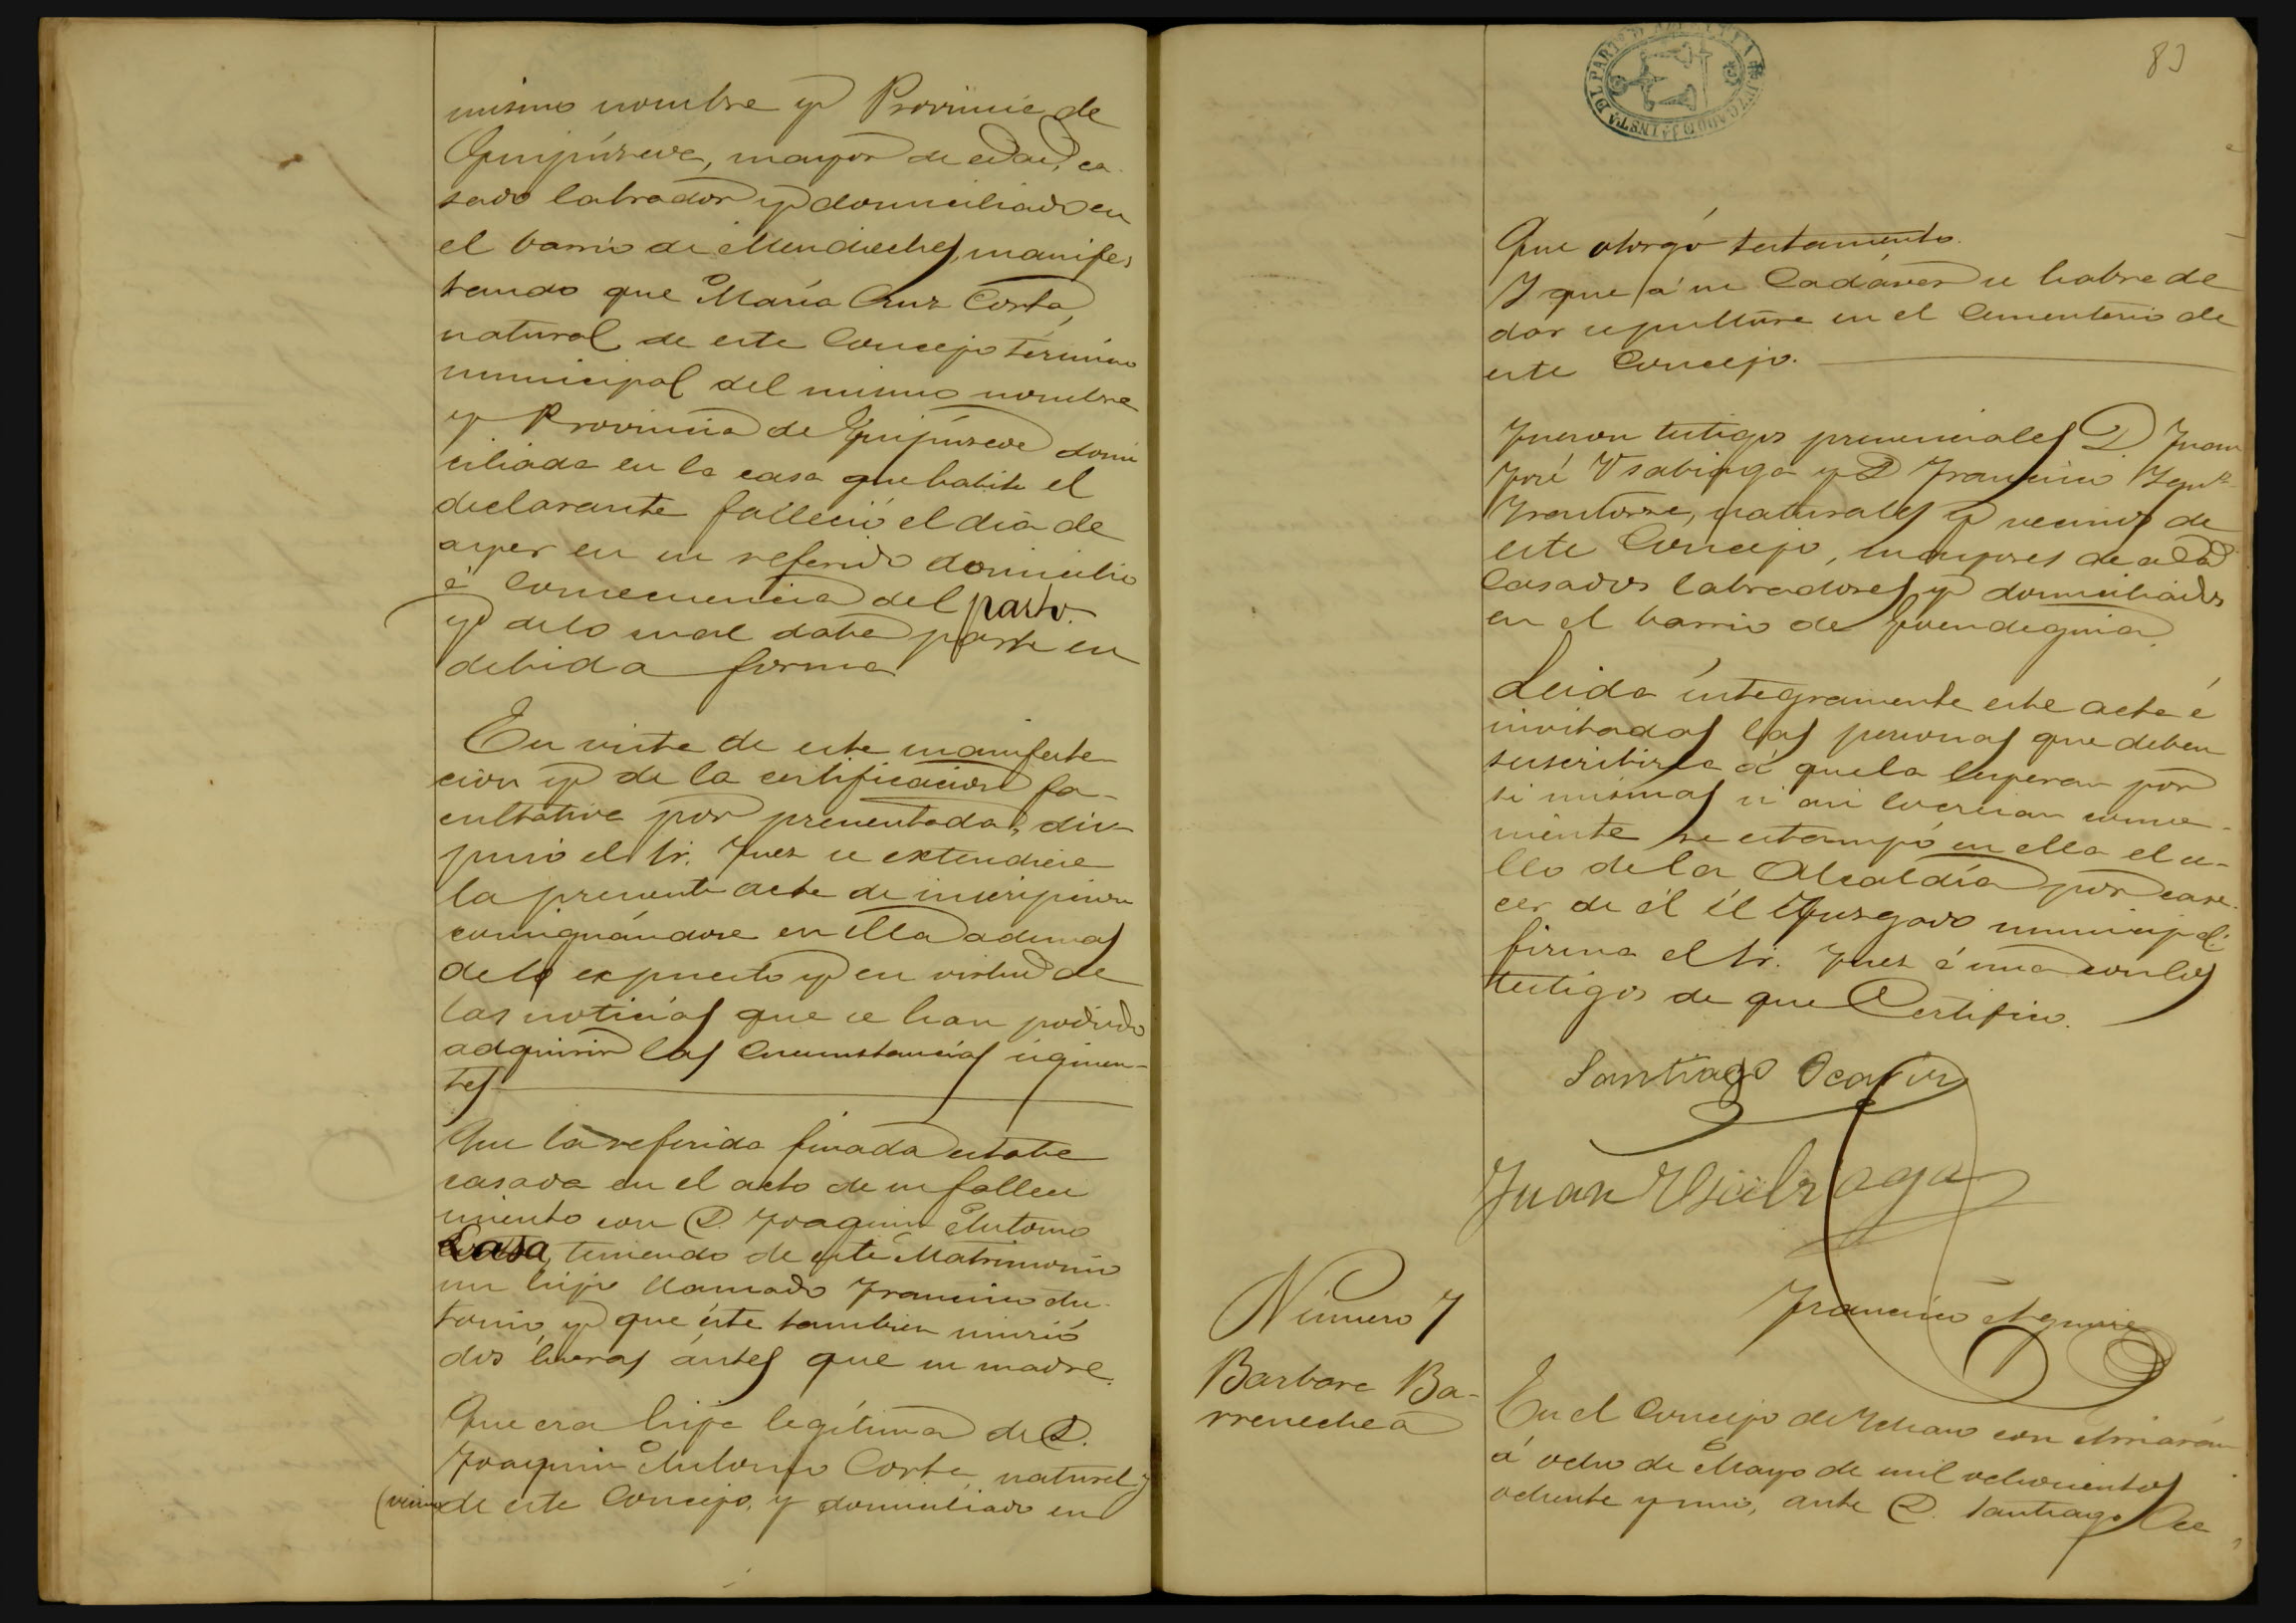 mismo nombre y Provincia de
Guipúzcoa, mayor de edad, ca-
sado labrador y domiciliado en
el barrio de manifes
tando que María Cruz Corta,
natural de este Concejo término
municipal del mismo nombre
y Provincia de Guipúzcoa domi
ciliada en la casa que habita el
declarante falleció el dia de
ayer en su referido domicilio
á consecuencia del parto.
y de lo cual daba parte en
debida forma
En vista de esta manifesta-
cion y de la certificación fa-
cultativa por presentada, dis-
puso el Sr. Juez se extendiese
la presente acta de inscripcion
consignándose en ella ademas
de lo expuesto y en virtud de
las noticias que se han podido
adquirir las circunstancias siguien-
tes
Que la referida finada estaba
casada en el acto de su falleci
miento con D. Joaquin Antonio
Lasa, teniendo de este Matrimonio
un hijo llamado Francisco An-
tonio y que éste tambien murió
dos horas ántes que su madre.
Que era hija legítima de D.
Joaquin Antonio Corta, natural y
(vecino de este Concejo, y domiciliado en
83
JUZGADO DE 1A INSTA DEL PARTO DE AZPEITIA
Que otorgó testamento.
Y que á su Cadáver se habrá de
dar sepultura en el Cementerio de
este Concejo.
Fueron testigos presenciales D Juan
José Usabiaga y D Francisco Ign.º
naturales y vecinos de
este Concejo, mayores de edad
Casados labradores y domiciliados
en el barrio de
Leida íntegramente esta acta é
invitadas las personas que deben
suscribirla á que la leyeran por
si mismas si asi lo creian conve-
niente se estampó en ella el se-
llo de la Alcaldía por care-
cer de él el Juzgado municipal:
firma el Sr. Juez é una con los
testigos de que Certifico.
Santiago Ocariz
Juan Usabiaga
Francisco Aguirre
Número 7
Barbara Ba-
rrenechea
En el Concejo de Ichaso con Arriarán
á ocho de Mayo de mil ochocientos
ochenta y uno, ante D. Santiago Oca